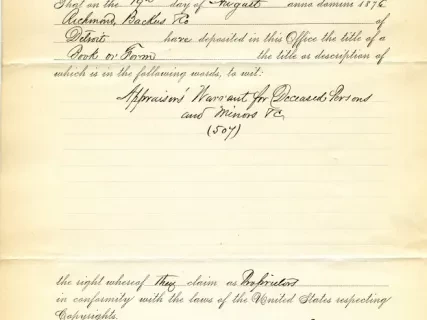 That on the 19th day of August anno domini 1876
Richmond, Backus & Co of
Detroit have deposited in this Office the title of a
Book or Form the title or description of
which is in the following words, to wit:
Appraisers' Warrant for Deceased Persons
and Minors &c.
(507)
the right whereof they claim as Proprietors
in conformity with the laws of the United States respecting
Copyrights.